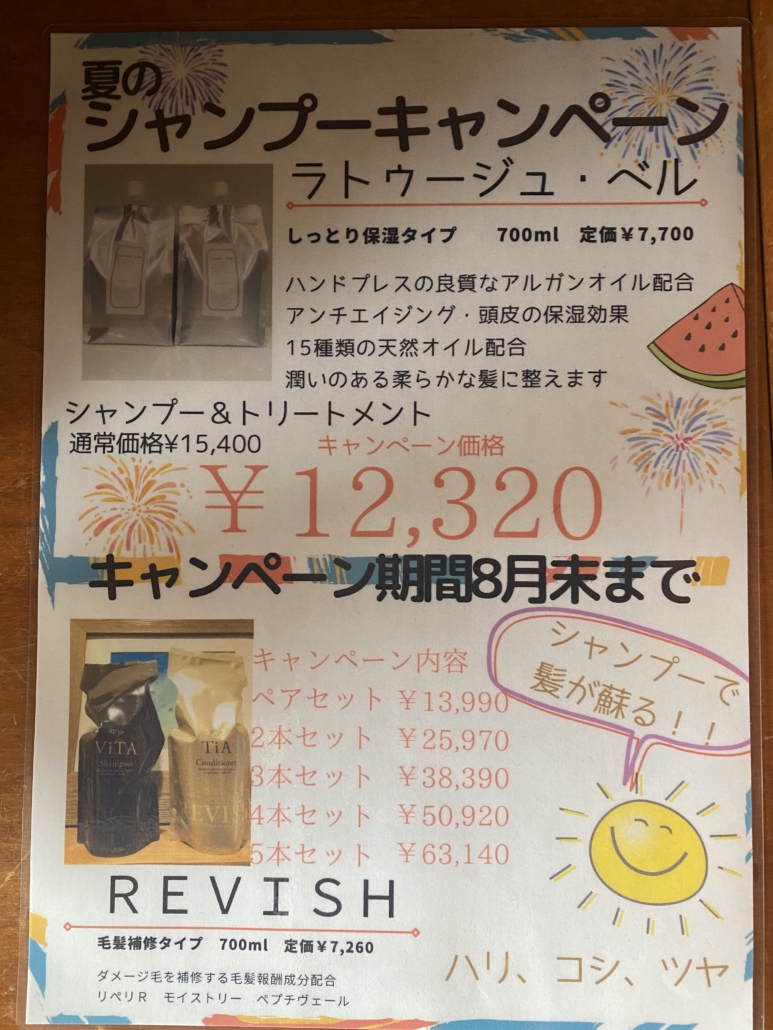 夏の
シャンプーキャンペーン
ラトゥージュ・ベル
しっとり保湿タイプ 700ml 定価¥7,700
ハンドプレスの良質なアルガンオイル配合
アンチエイジング・頭皮の保湿効果
15種類の天然オイル配合
潤いのある柔らかな髪に整えます
シャンプー&トリートメント
通常価格¥15,400
キャンペーン価格
¥12,320
キャンペーン期間8月末まで
シャンプーで
髪が蘇る!!
キャンペーン内容
ペアセット ¥13,990
2本セット ¥25,970
3本セット ¥38,390
4本セット ¥50,920
5本セット ¥63,140
ViTA
Shampoo
TiA
Conditioner
REVIS
REVISH
毛髪補修タイプ 700ml 定価¥7,260
ダメージ毛を補修する毛髪報酬成分配合
リペリR モイストリー ペプチヴェール
ハリ、コシ、ツヤ